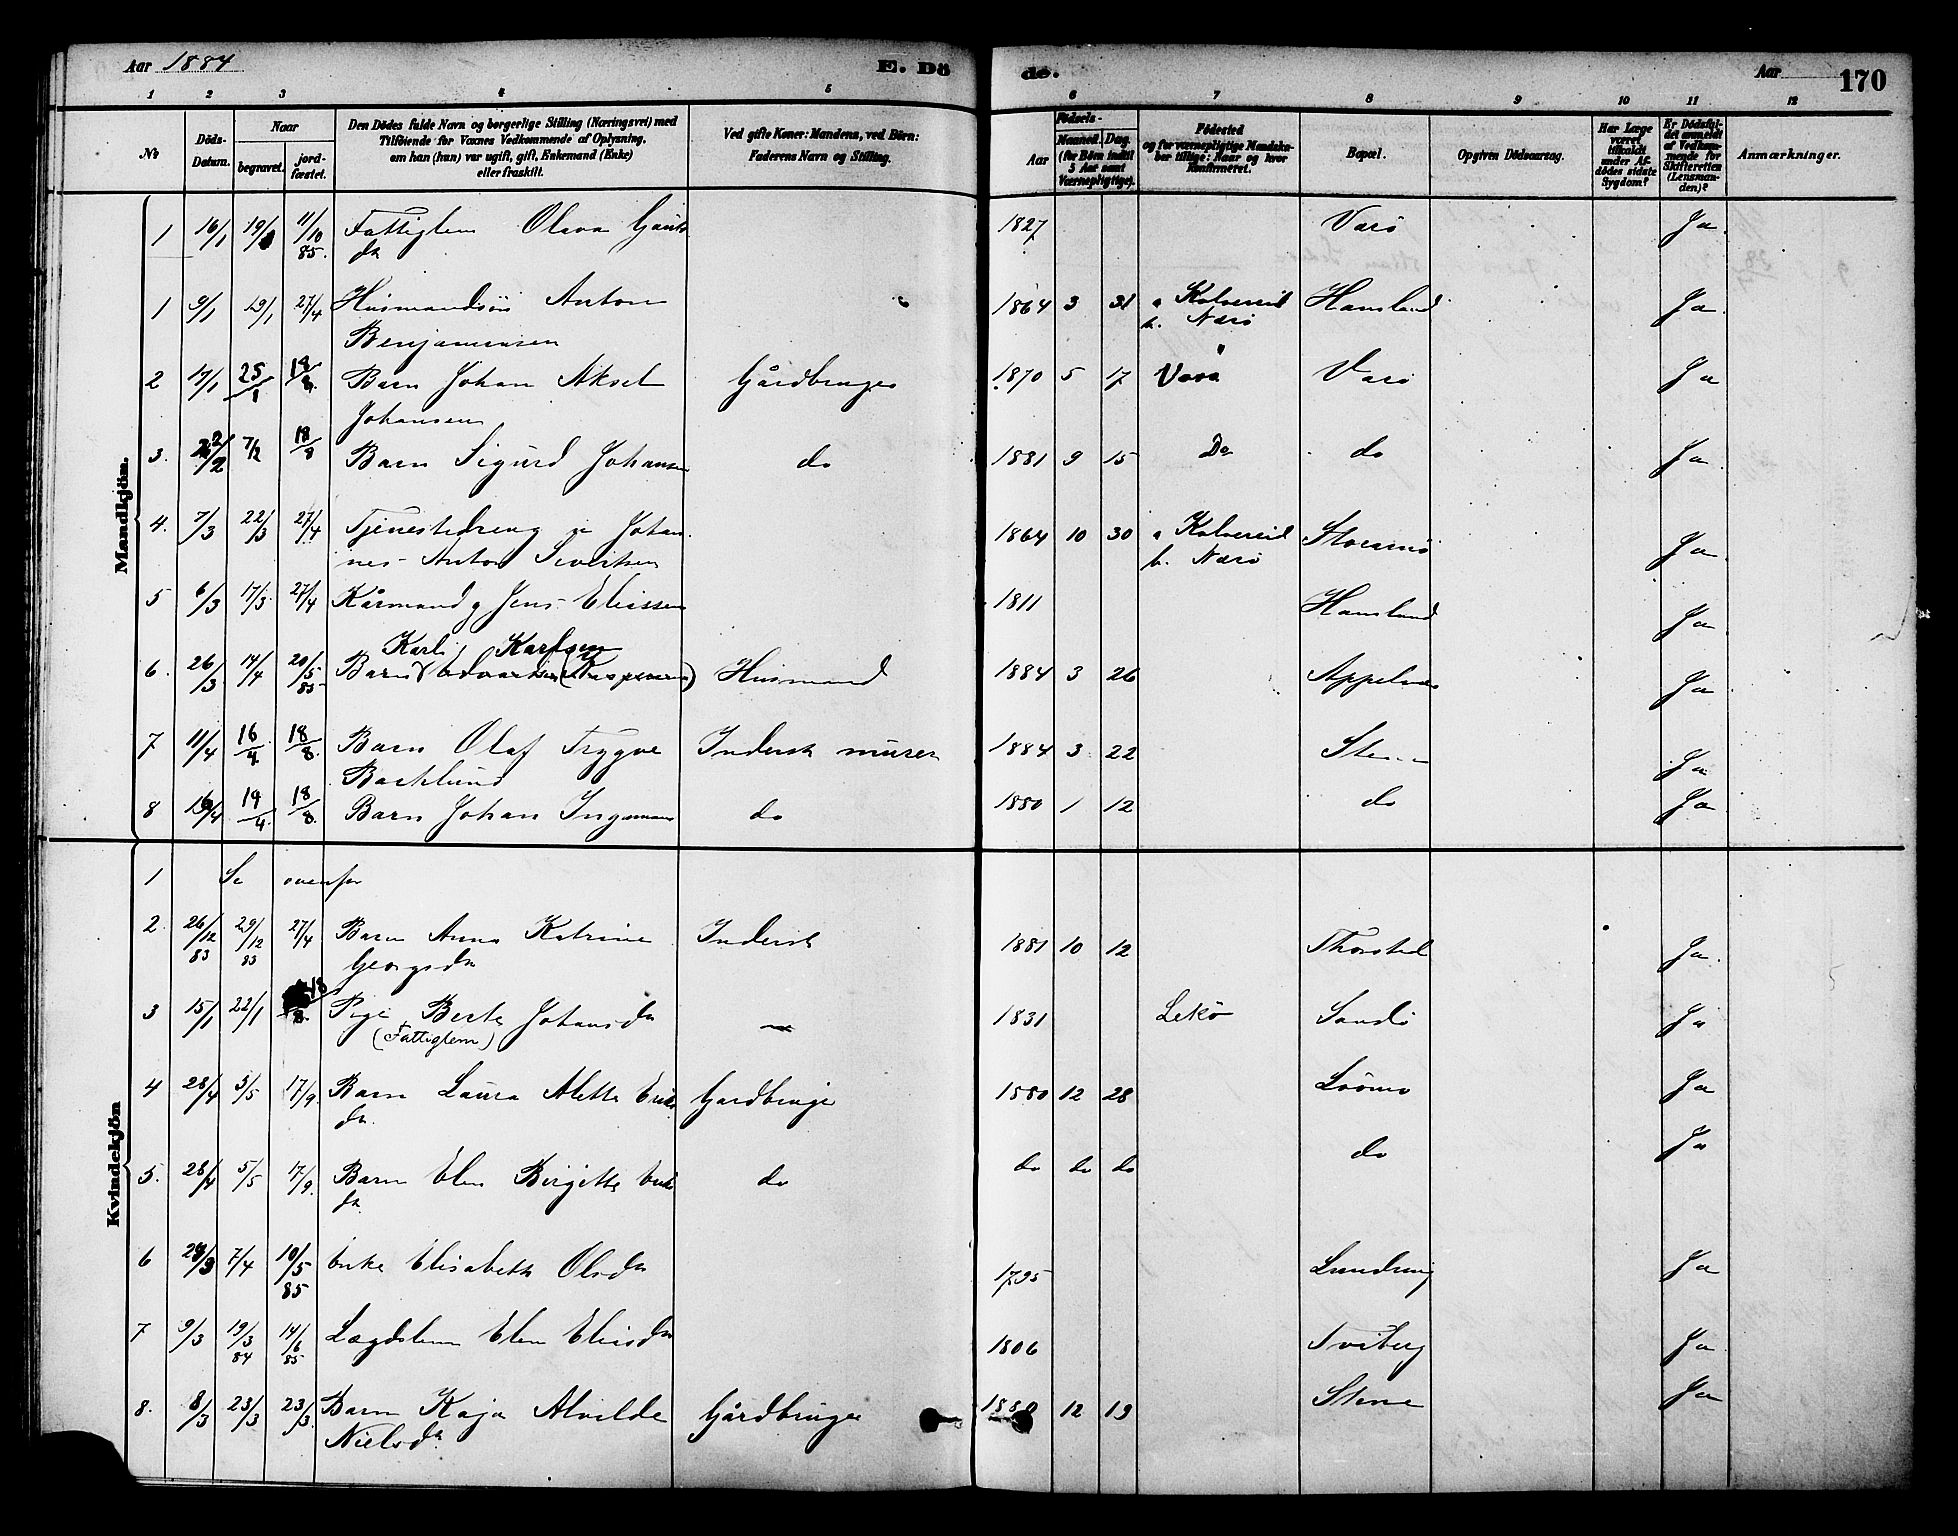 Aar 1884 E. Dö de. Aar 170
1 2 3 4 5 6 7 8 9 10 11 12
No
Döds-Datum.
Naar
begravet.
jord-fæstet.
Den Dödes fulde Navn og borgerlige Stilling (Næringsvei) med
Tilföiende for Voxnes Vedkommende af Oplysning,
om han (hun) var ugift, gift, Enkemand (Enke)
eller fraskilt.
Ved gifte Koner: Mandens, ved Börn:
Faderens Navn og Stilling.
Födsels-
Aar
Maaned. Dag
(for Börn indtil
5 Aar samt
Værnepligtige).
Födested
og for værnepligtige Mandska-
ber tillige: Naar og hvor
konfirmeret.
Bopæl.
Opgiven Dödsaarsag.
Har Læge
været
tilkaldt
under Af-
dödes sidste
Sygdom?
Er Dödsfal-
det anmeldt
af Vedkom-
mende for
Skifteretten
(Lensman-
den)?
Anmærkninger.
Mandkjön.
1 16/1 19/1 11/10 85. Fattiglem Olava 1827 Varö Ja
dr
1 9/1 19/1 27/4 Husmandsön Anton 1864 3 31 a Kolvereid Hamland Ja
Benjaminsen b. Närö
2 17/1 25/1 18/8 Barn Johan Aksel Gårdbruger 1870 5 17 Varö Varö Ja
Johansen
3. 7/2 18/8 Barn Sigurd Johansen do 1881 9 15 Do do Ja
4. 7/3 22/3 27/4 Tjenestedreng u Johan 1864 10 30 a Kolvereid Ja
nes Anton Sivertsen b. Närö
5 6/3 17/3 27/4 Kårmand g Jens Eliassen 1811 Hamland Ja
Karl Karlsen
6. 26/3 14/4 20/5 85 Barn Edvardsen Husmand 1884 3 26 Appelvær Ja
7 11/4 16/4 18/8 Barn Olaf Trygve Inderst murer 1884 3 22 Stene Ja
Backlund
8 16/4 19/4 18/8 Barn Johan Ingeman do 1880 1 12 do Ja
Kvindekjön
1 Se ovenfor
2 26/12 83 29/12 83 27/4 Barn Anna Katrine Inderst 1881 10 12 Thorsted Ja
Georgsdr
3 15/1 22/1 18/8 Pige Berte Johansdr — 1831 Lekö Sandö Ja
(Fattiglem)
4 28/4 5/5 17/9. Barn Laura Alette Eriks Gardbruge 1880 12 28 Ja
dr.
5. 28/4 5/5 17/9. Barn Elen Birgitte Eriks do do do do do Ja
dr
6 29/3 7/4 10/5 85 Enke Elisabeth Olsdr 1795 Ja
7 9/3 19/3 84 14/6 85 Lægdslem Elen Eliasdr 1806 Tviberg Ja
8. 8/3 23/3 23/3 Barn Kaja Alvilde Gårdbruger 1880 12 19 Stene Ja
Nielsdr